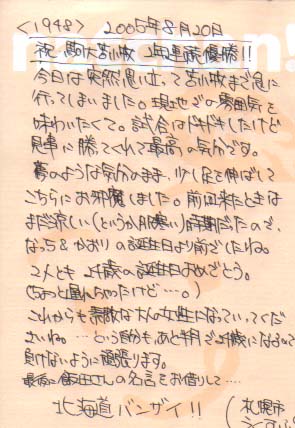 〈1948〉 2005年8月20日
祝 駒大苫小牧 2年連続優勝!!
今日は突然思い立って苫小牧まで急に
行ってしまいました。現地での雰囲気を
味わいたくて。試合はドキドキしたけど
見事に勝ってくれて最高の気分です。
夢のような気分のまま、少し足を伸ばして
こちらにお邪魔しました。前回来たときは
まだ涼しい(というか肌寒い)時期だったので、
なっち&かおりの誕生日より前でしたね。
2人とも 24歳の誕生日おめでとう。
(ちょっと遅れちゃったけど…。)
これからも素敵な大人の女性になっていってくだ
さいね。…という自分もあと半月で24歳になるので
負けないように頑張ります。
最後に飯田さんの名言をお借りして…
北海道バンザイ!!
(札幌市